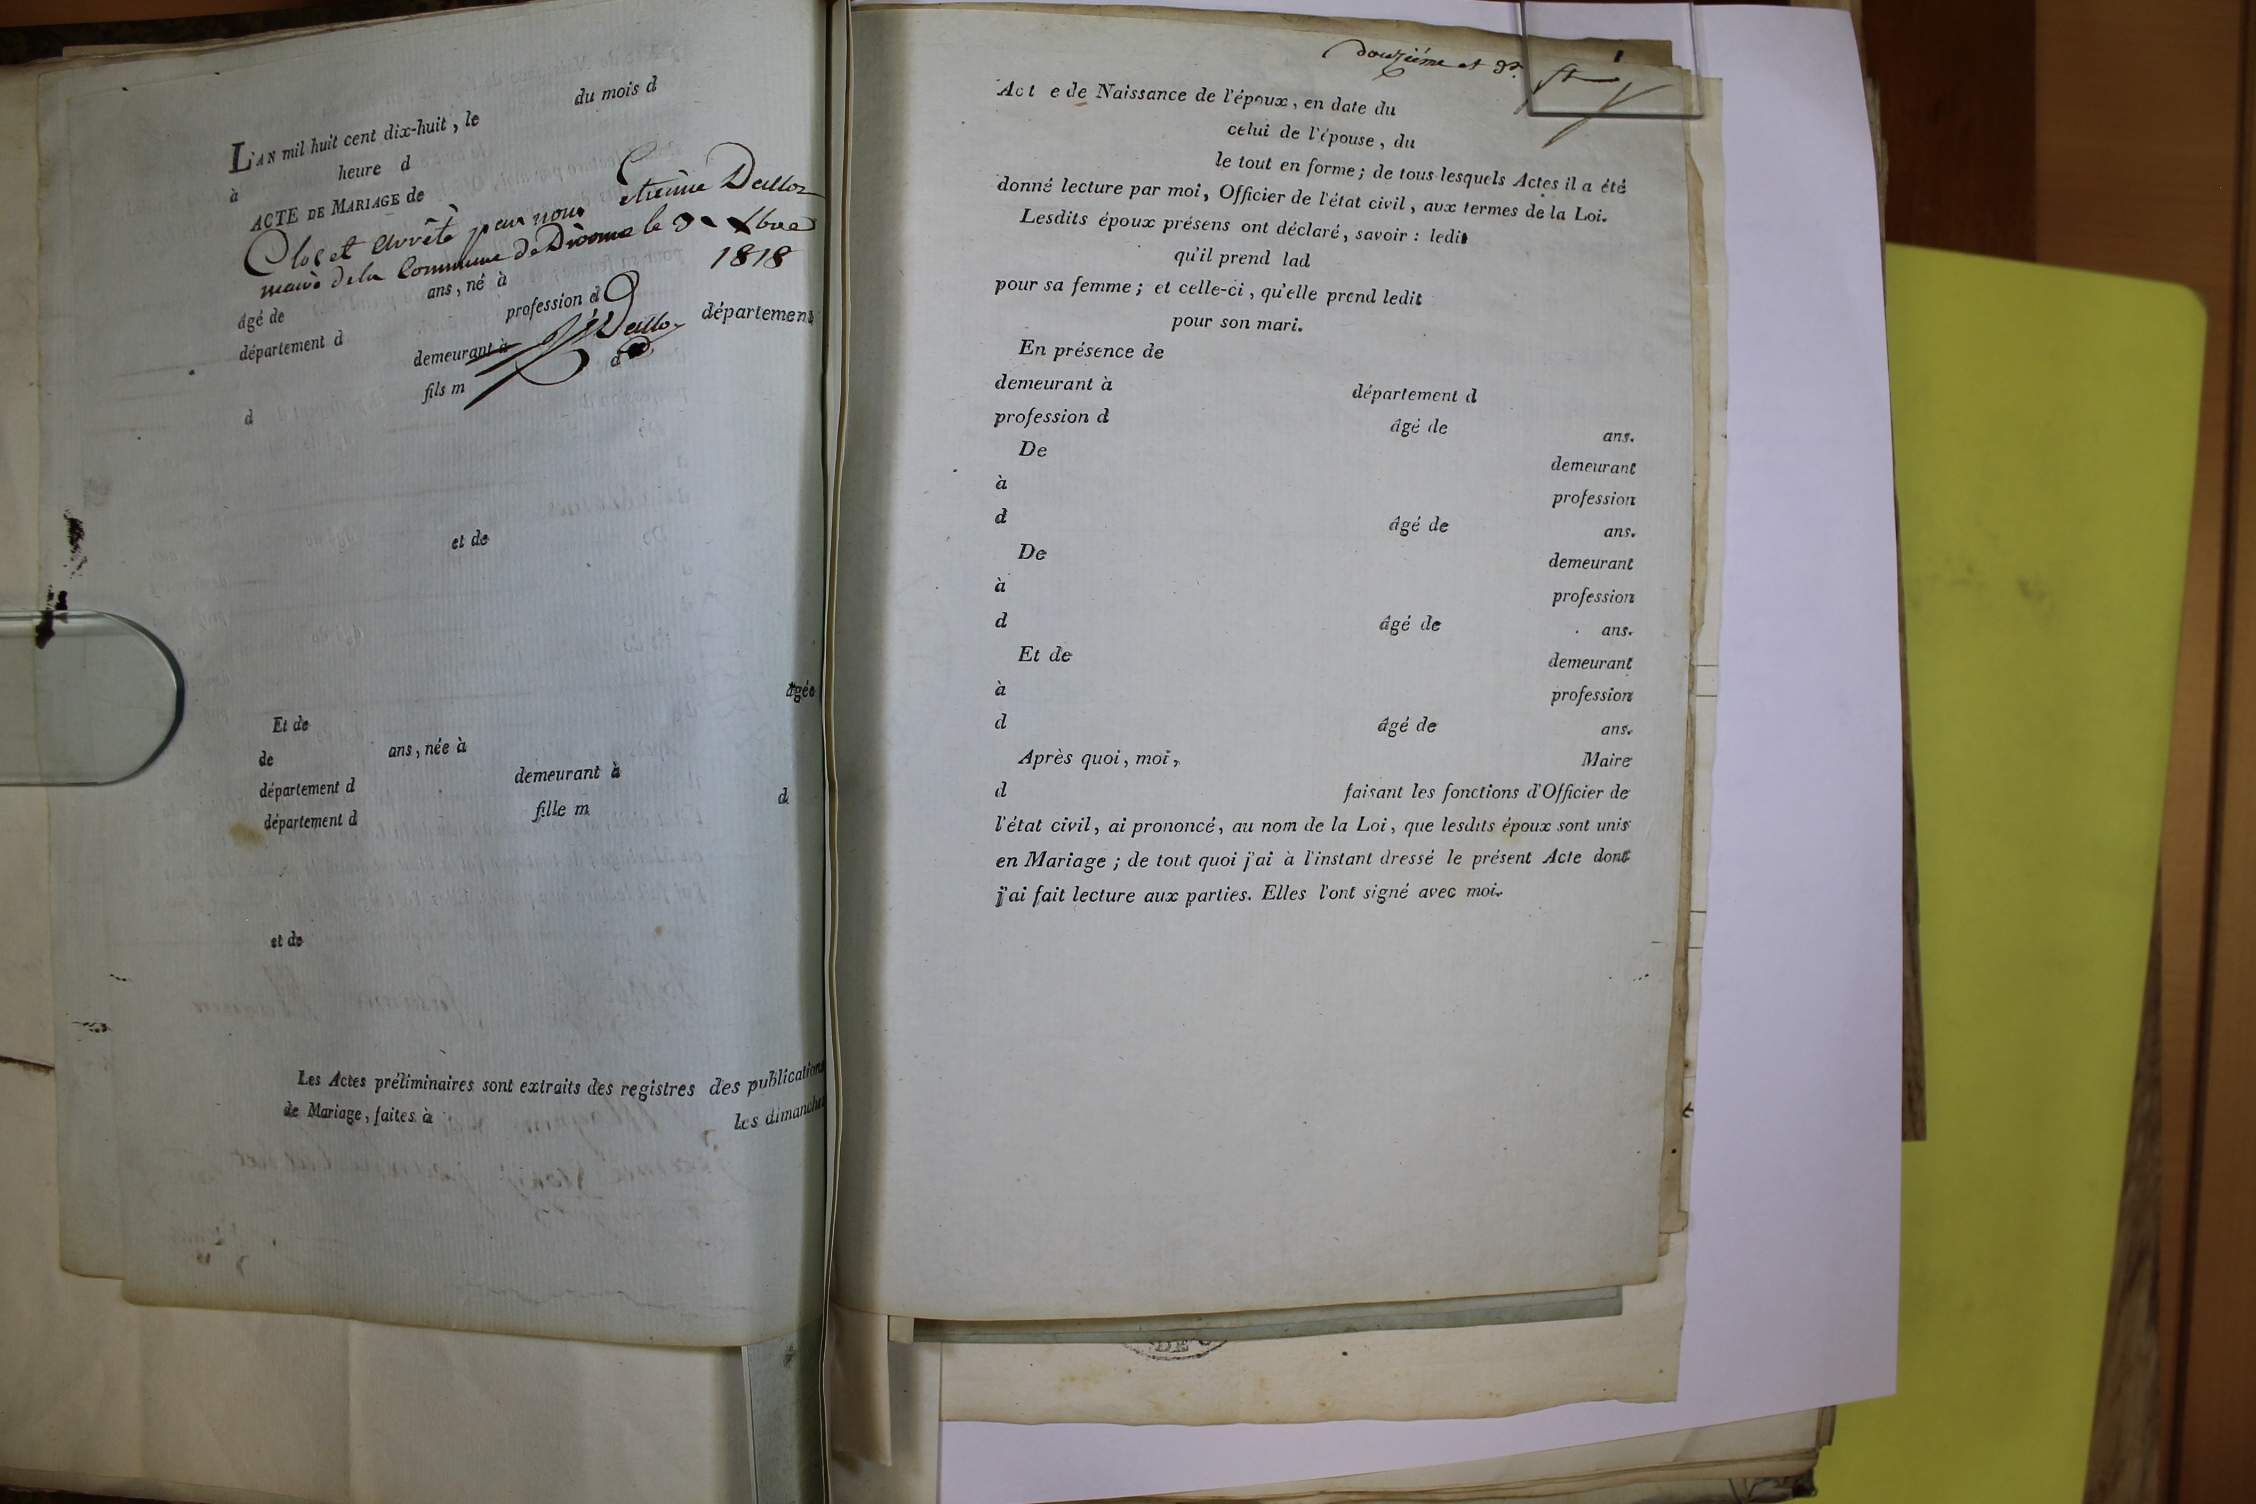 L'AN mil huit cent dix-huit, le du mois d
à heure d
ACTE DE MARIAGE de
Clos et arrêté par nous etienne Dalloz
maire de la Commune de le 1818
âgé de ans, né à
département d profession d
demeurant à département
fils m d
d
et de
Et de âgée
de ans, née à
département d demeurant à
département d fille m d
et de
Les Actes préliminaires sont extraits des registres des publications
de Mariage, faites à les dimanches
douzième et
Act e de Naissance de l'époux, en date du
celui de l'épouse, du
le tout en forme; de tous lesquels Actes il a été
donné lecture par moi, Officier de l'état civil, aux termes de la Loi.
Lesdits époux présens ont déclaré, savoir: ledit
qu'il prend lad
pour sa femme; et celle-ci, qu'elle prend ledit
pour son mari.
En présence de
demeurant à département d
profession d âgé de ans.
De demeurant
à profession
d âgé de ans.
De demeurant
à profession
d âgé de ans.
Et de demeurant
à profession
d âgé de ans.
Après quoi, moi, Maire
d faisant les fonctions d'Officier de
l'état civil, ai prononcé, au nom de la Loi, que lesdits époux sont unis
en Mariage; de tout quoi j'ai à l'instant dressé le présent Acte dont
j'ai fait lecture aux parties. Elles l'ont signé avec moi.
DE